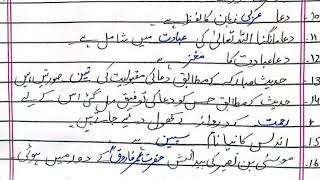 10. دعا عربی زبان کا لفظ ہے
11. دعا مانگنا اللہ تعالیٰ کی عبادت میں شامل ہے
12. دعا عبادت کا مغز ہے
13. حدیث مبارکہ کے مطابق دعا کی مقبولیت کی تین صورتیں ہیں
14. حدیث کے مطابق جس کو دعا کی توفیق مل گئی اس کے لیے
رحمت کے دروازے کھول دیے جاتے ہیں۔
15. اندلس کا نیا نام سپین ہے
16. موسیٰ بن نصیر کی پیدائش حضرت عمر فاروقؓ کے دور میں ہوئی